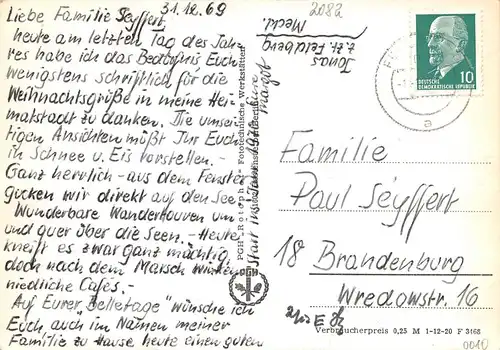 31.12.69
Liebe Familie Seyffert,
heute am letzten Tag des Jah-
res habe ich das Bedürfnis Euch
wenigstens schriftlich für die
Weihnachtsgrüße in meine Hei-
matstadt zu danken. Die umsei-
tigen Ansichten müßt Ihr Euch
in Schnee u. Eis vorstellen. -
Ganz herrlich - aus dem Fenster
gucken wir direkt auf den See
Wunderbare Wandertouren um
und quer über die Seen. - Heute
kneift es zwar ganz mächtig,
doch nach dem Marsch winken
niedliche Cafés. -
Auf Eurer „Belletage" wünsche ich
Euch, auch im Namen meiner
Familie zu Hause heute einen guten
Start ins Jahr 1970. Eure
Margot
z. Zt. Feldberg
Meckl.
2082
PGH „Rotophot" Fototechnische Werkstätten
PGH
DEUTSCHE
DEMOKRATISCHE REPUBLIK
10
a
Familie
Paul Seyffert
18 Brandenburg
Wredowstr. 16
Verbraucherpreis 0,25 M 1-12-20 F 3168
0010